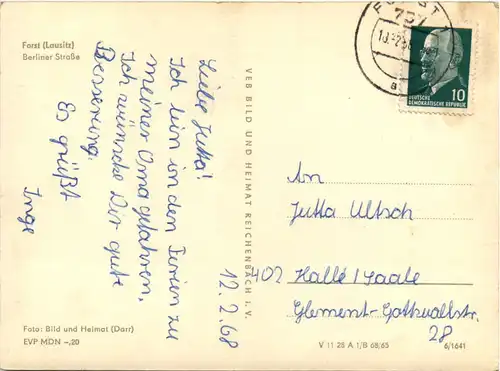 Forst (Lausitz)
Berliner Straße
Liebe Jutta!
Ich bin in den Ferien zu
meiner Oma gefahren.
Ich wünsche Dir gute
Besserung.
Es grüßt
Inge
12.2.68
Foto: Bild und Heimat (Darr)
EVP MDN -,20
VEB BILD UND HEIMAT REICHENBACH i. V.
FORST
757
a
10
DEUTSCHE
DEMOKRATISCHE REPUBLIK
An
Jutta Ultsch
402 Halle/Saale
Glement-Gottwaldstr.
28
V 11 28 A 1/B 68/65
6/1641